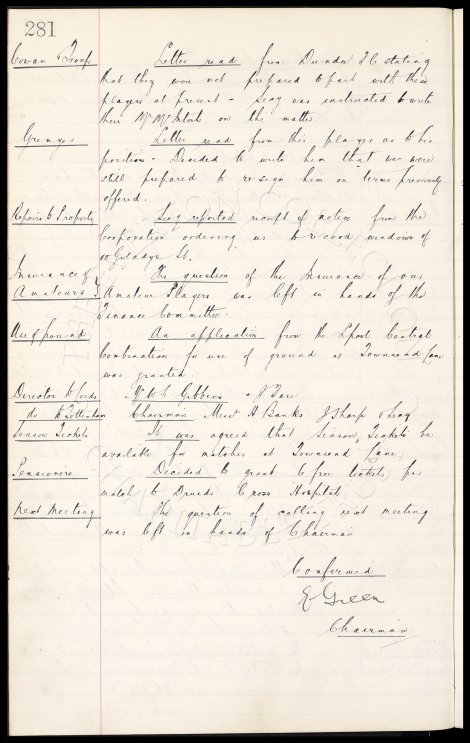 281
Cowan & Troup Letter read from Dundee F C stating
that they were not prepared to part with these
players at present - Secy was instructed to write
their Mr McIntosh on the matter.
Grenyer Letter read from this player as to his
position - Decided to write him that we were
still prepared to re-sign him on terms previously
offered.
Repairs to Property Secy reported receipt of notice from the
Corporation ordering us to re-cord windows of
Goladye St.
Insurance of The question of the Insurance of our
Amateurs Amateur Players was left in hands of the
Finance Committee.
Use of ground An application from the Lpool Central
Combination for use of ground at Townsend Lane
was granted.
Director to Leeds Mr W C Gibbins & J Fare
do to Tottenham Chairman Messrs H Banks J Sharp & Secy
Season Tickets It was agreed that Season Tickets be
available for matches at Townsend Lane,
Pensioners Decided to grant 6 free tickets per
match to Druids Cross Hospital
Next Meeting The question of calling next meeting
was left in hands of Chairman
Confirmed
E Green
Chairman